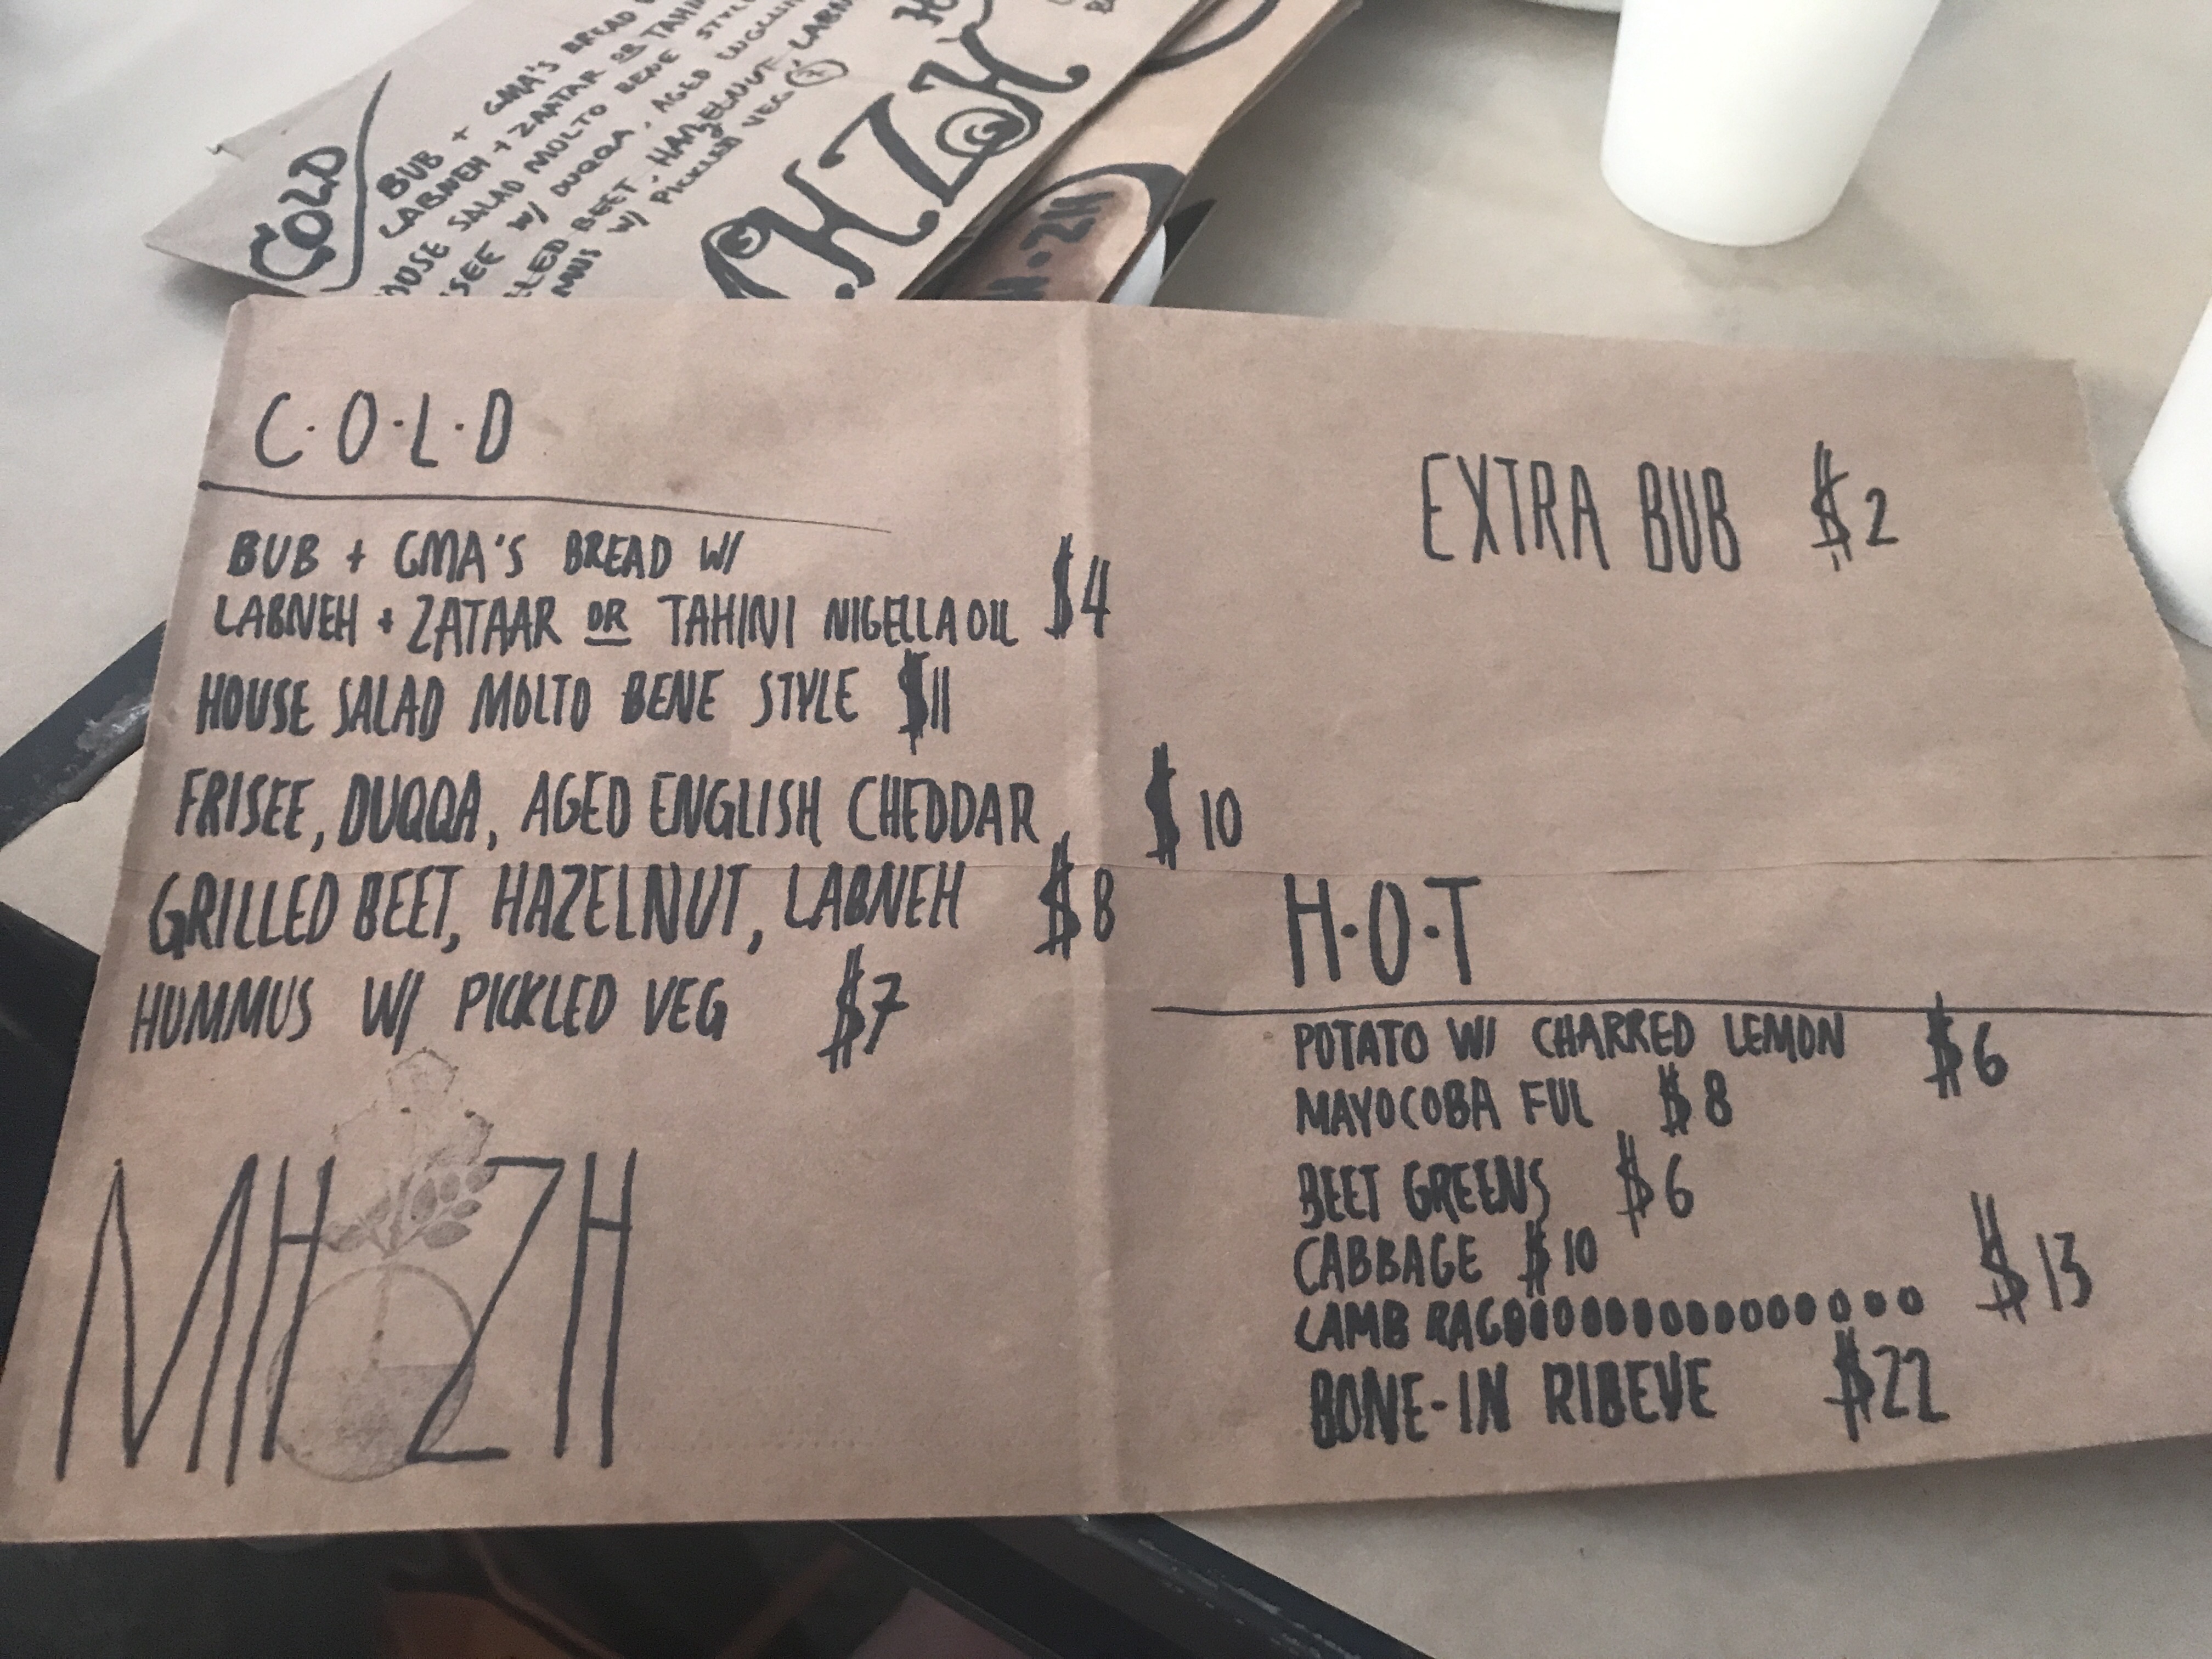 COLD
BUB + GMA'S BREAD
LABNEH + ZAATAR OR TAHIN
HOUSE SALAD MOLTO BENE STYLE
SEE W/ DUQQA, AGED ENGLIS
LLED BEET, HAZELNUT, LABN
MUS W/ PICKLED VEG 7
MHZH
H·ZH
C·O·L·D
BUB + GMA'S BREAD W/
LABNEH + ZATAAR OR TAHINI NIGELLA OIL $4
HOUSE SALAD MOLTO BENE STYLE $11
FRISEE, DUQQA, AGED ENGLISH CHEDDAR $10
GRILLED BEET, HAZELNUT, LABNEH $8
HUMMUS W/ PICKLED VEG $7
MHZH
EXTRA BUB $2
H·O·T
POTATO W/ CHARRED LEMON $6
MAYOCOBA FUL $8
BEET GREENS $6
CABBAGE $10
LAMB RAGOOOOOOOOOOOOOOOO $13
BONE-IN RIBEYE $22